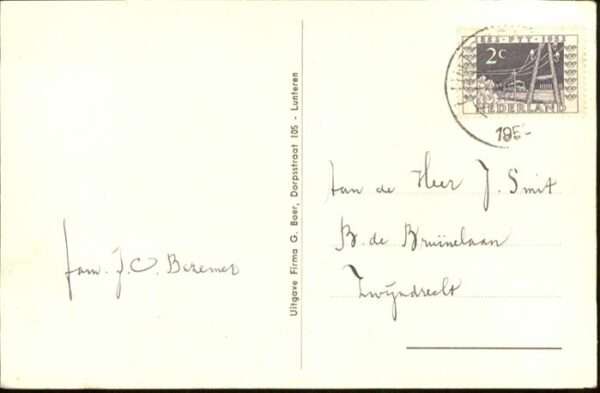 fam. J.C. Bezemer
Uitgave Firma G. Boer, Dorpsstraat 105 - Lunteren
PTT
2c
NEDERLAND
195-
Aan de Heer J. Smit
B. de Bruïnelaan
Zwijndrecht